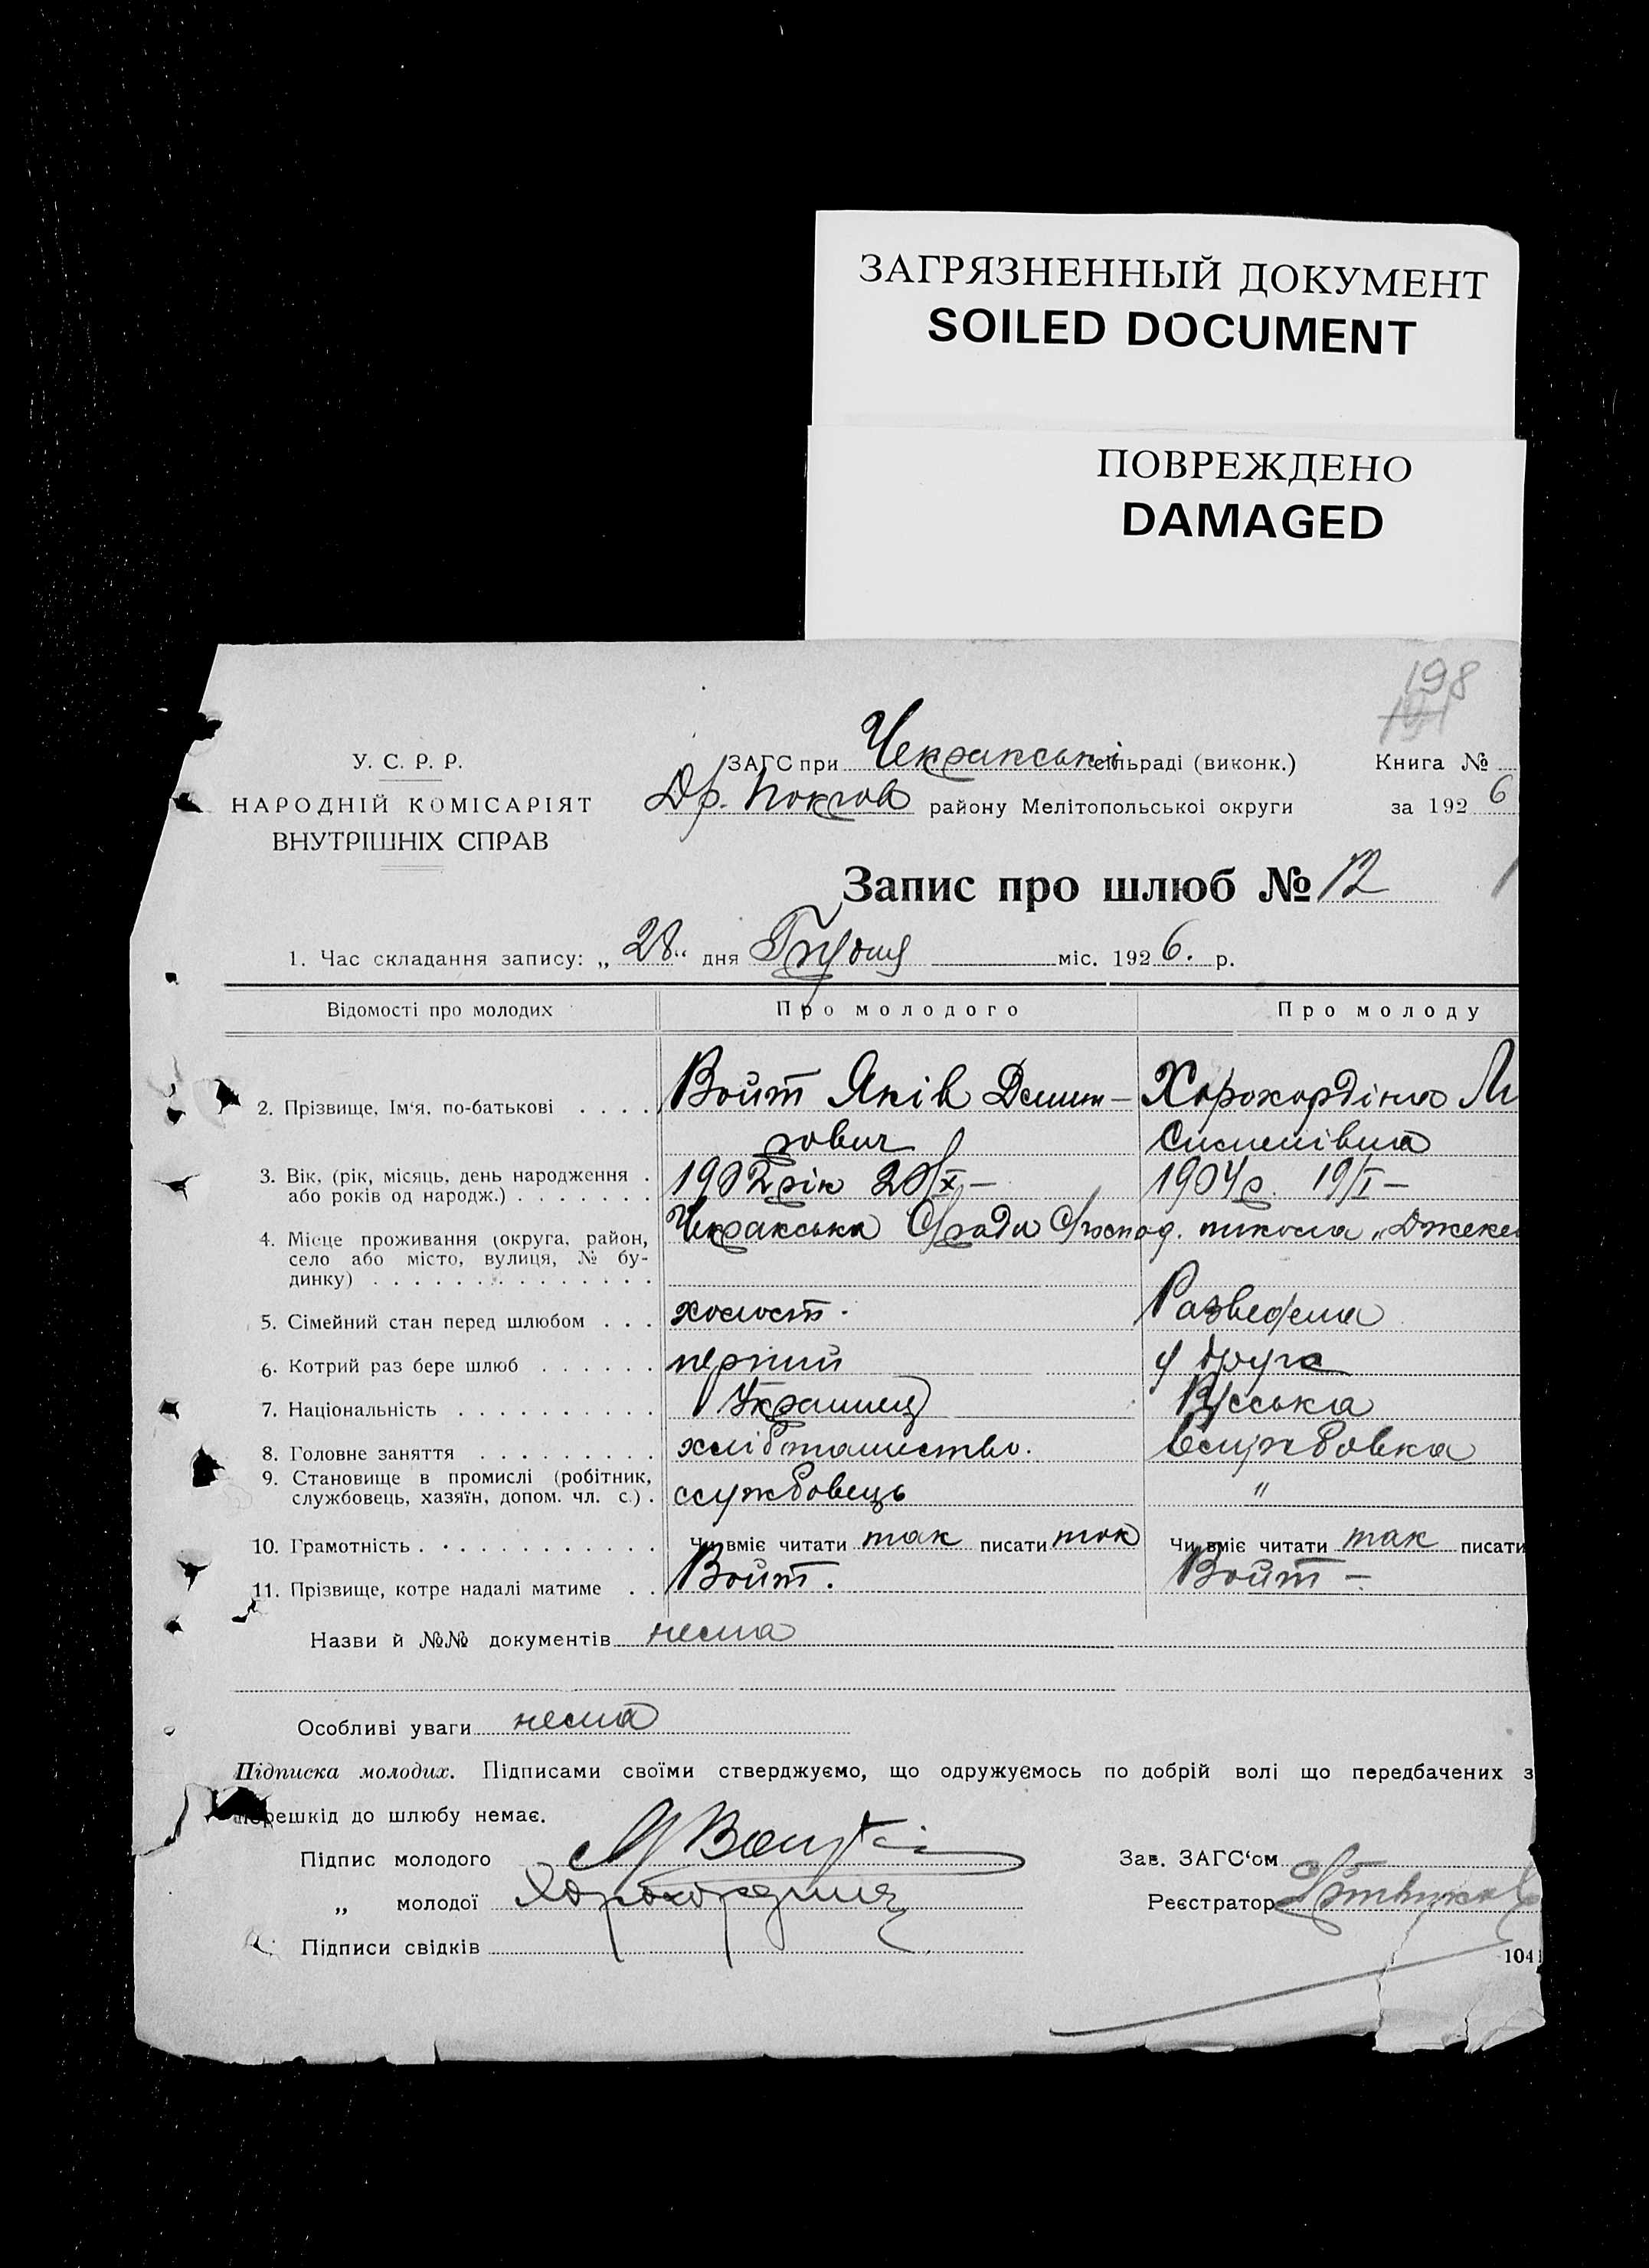 ЗАГРЯЗНЕННЫЙ ДОКУМЕНТ
SOILED DOCUMENT
ПОВРЕЖДЕНО
DAMAGED
198
У. С. Р. Р.
НАРОДНІЙ КОМІСАРІЯТ
ВНУТРІШНІХ СПРАВ
ЗАГС при Чекракські сільраді (виконк.)
Др. Покров району Мелітопольської округи
Книга №
за 1926
Запис про шлюб № 12
1. Час складання запису: „28“ дня Грудня міс. 1926. р.
Відомості про молодих Про молодого Про молоду
2. Прізвище, Ім‘я, по-батькові . . . . Войт Яків Дмит- Хорохордіна
рович
3. Вік, (рік, місяць, день народження . 1902 рік 1904р. 19/I –
або років од народж.) . . . . . . .
4. Місце проживання (округа, район, Чекракська С/рада
село або місто, вулиця, № бу-
динку) . . . . . . . . . . . . . . .
5. Сімейний стан перед шлюбом . . . холост. Разведена
6. Котрий раз бере шлюб . . . . . . перший у друге
7. Національність . . . . . . . . . . Украинец Руська
8. Головне заняття . . . . . . . . . хліборобство. службовка
9. Становище в промислі (робітник, службовець "
службовець, хазяїн, допом. чл. с.) .
10. Грамотність . . . . . . . . . . . . Чи вміє читати так писати так Чи вміє читати так писати
11. Прізвище, котре надалі матиме . . Войт. Войт –
Назви й №№ документів нема
Особливі уваги нема
Підписка молодих. Підписами своїми стверджуємо, що одружуємось по добрій волі що передбачених з
перешкід до шлюбу немає.
Підпис молодого
„ молодої
Підписи свідків
Зав. ЗАГС‘ом
Реєстратор
104